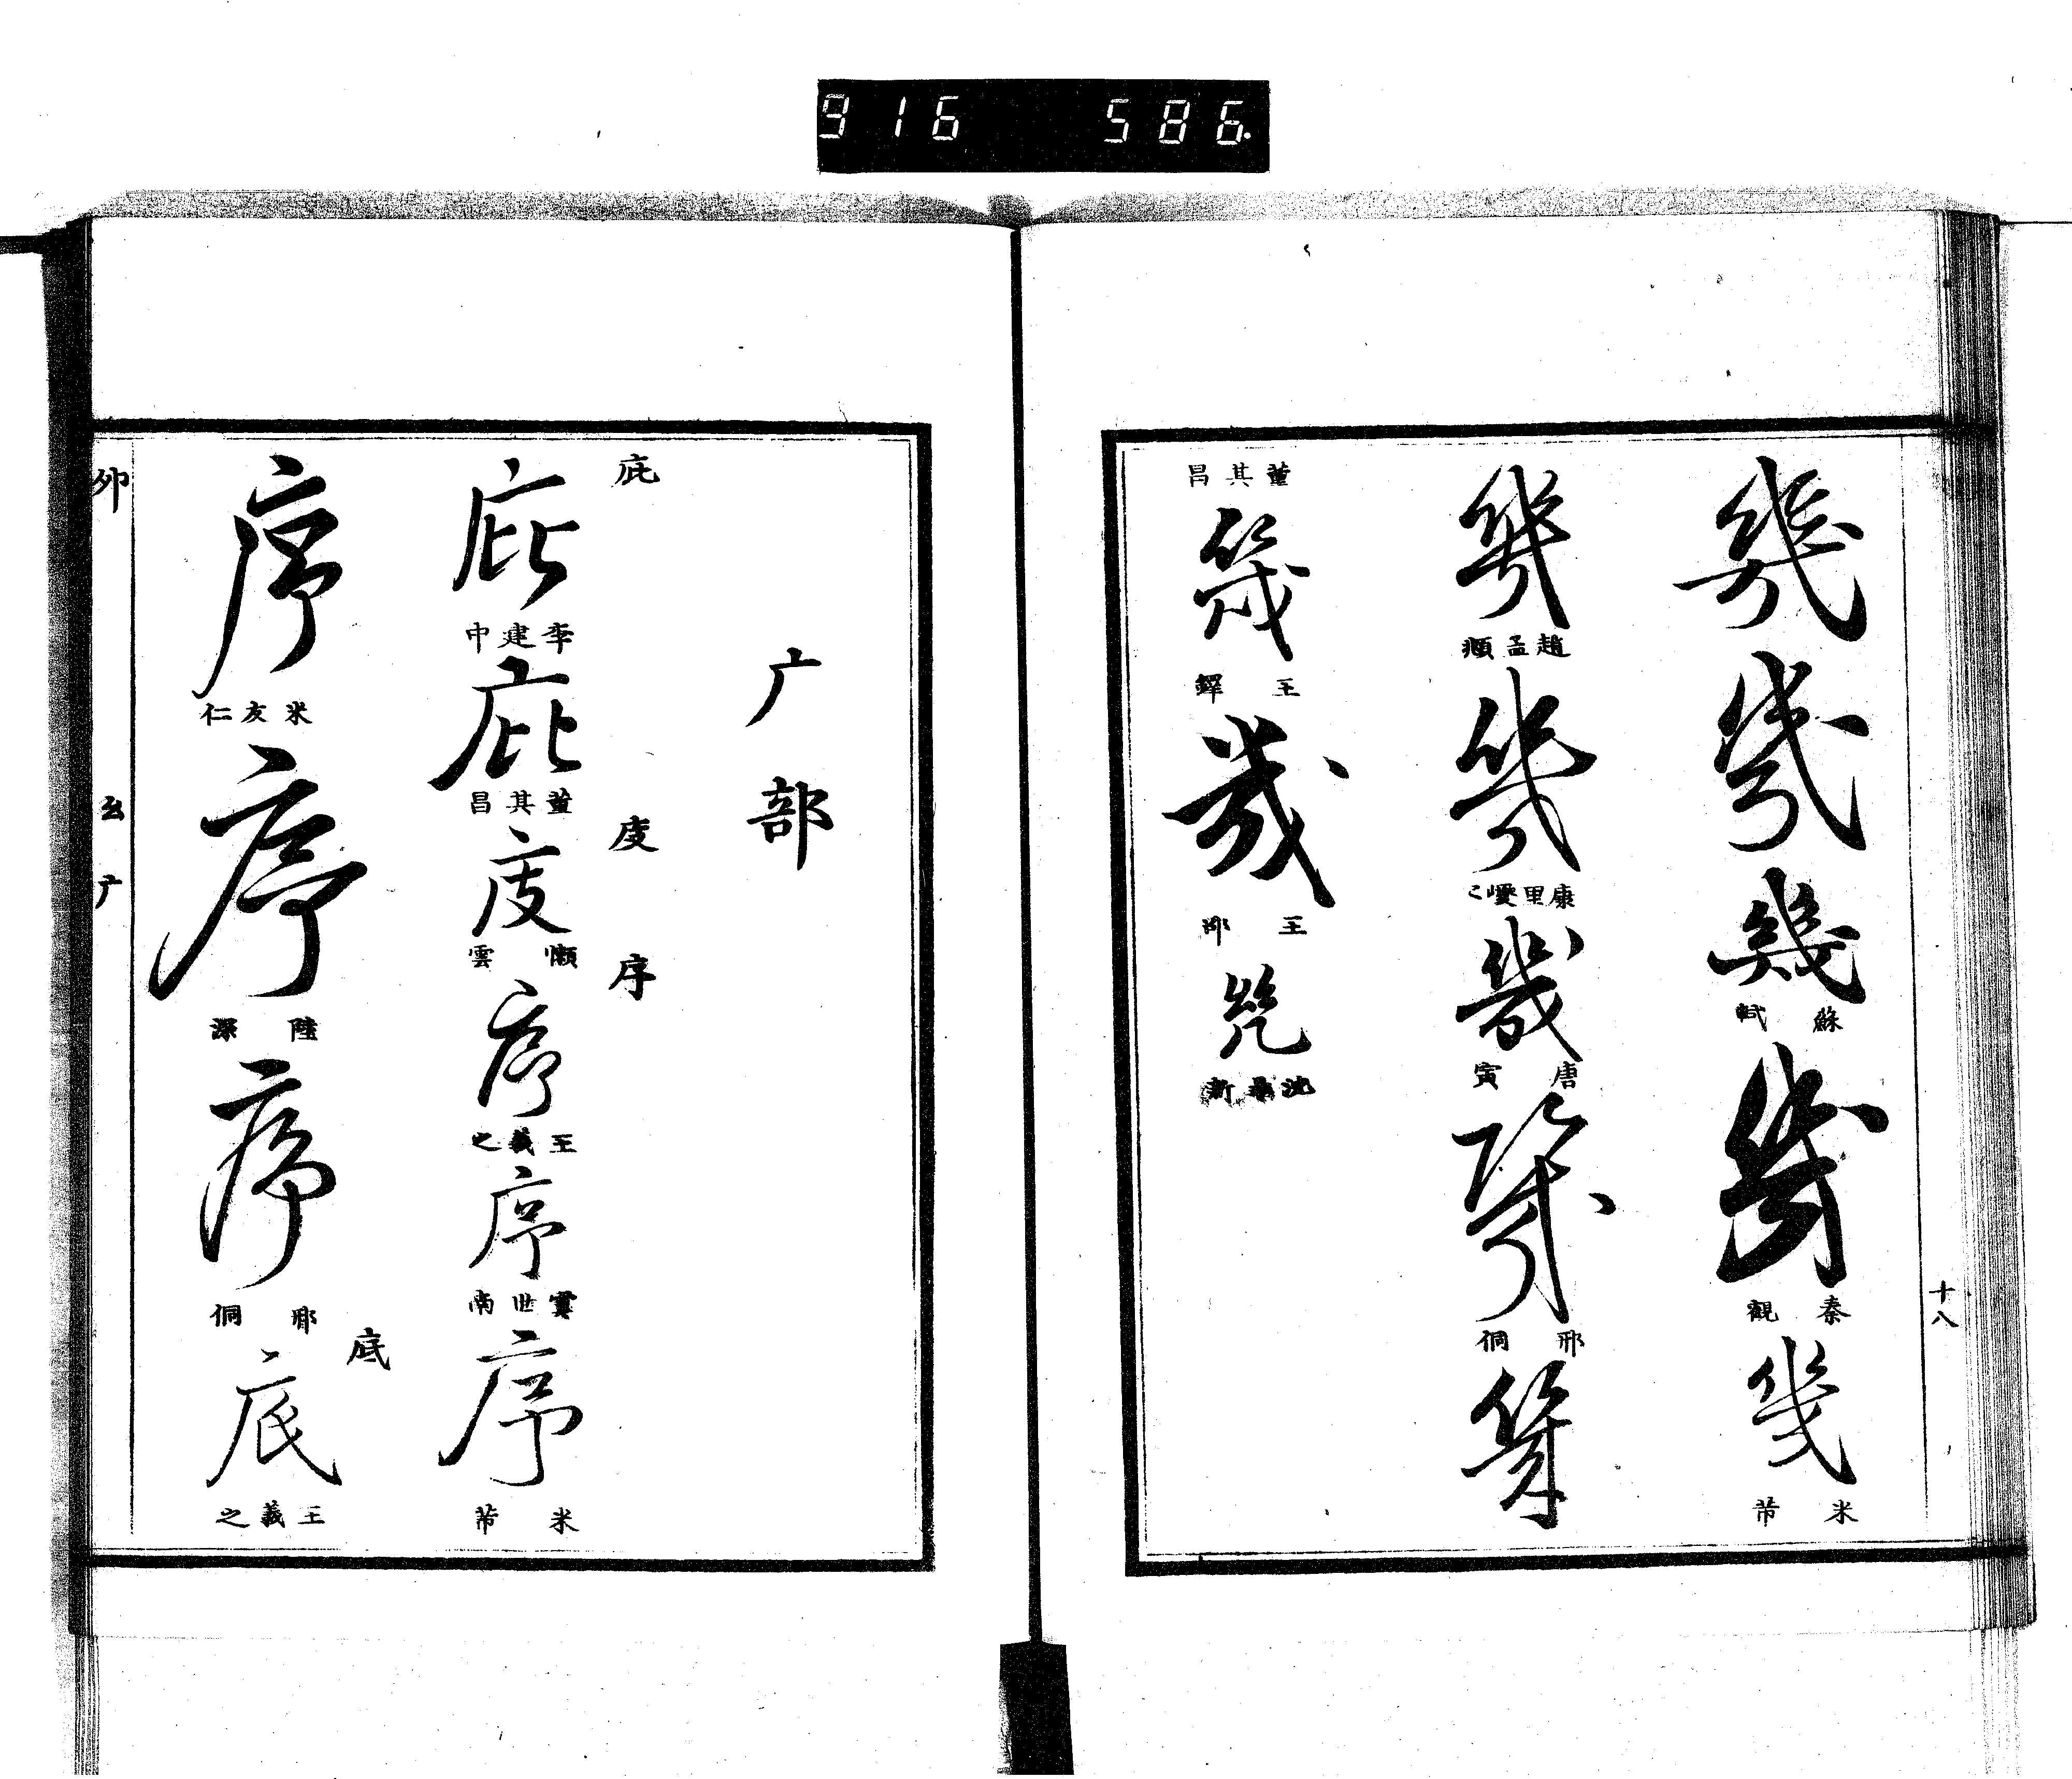 916 586.
十八
幾
幾
幾
蘇軾
幾
秦觀
幾
米芾
幾
趙孟頫
幾
康里巎〻
幾
唐寅
幾
邢侗
幾
董其昌
幾
王鐸
幾
王邵
幾
沈鼎新
广部
庇
庇
李建中
庇
董其昌
庋
庋
懶雲
序
序
王羲之
序
虞世南
序
米芾
序
米友仁
序
陸深
序
邢侗
底
底
王羲之
卯
幺
广